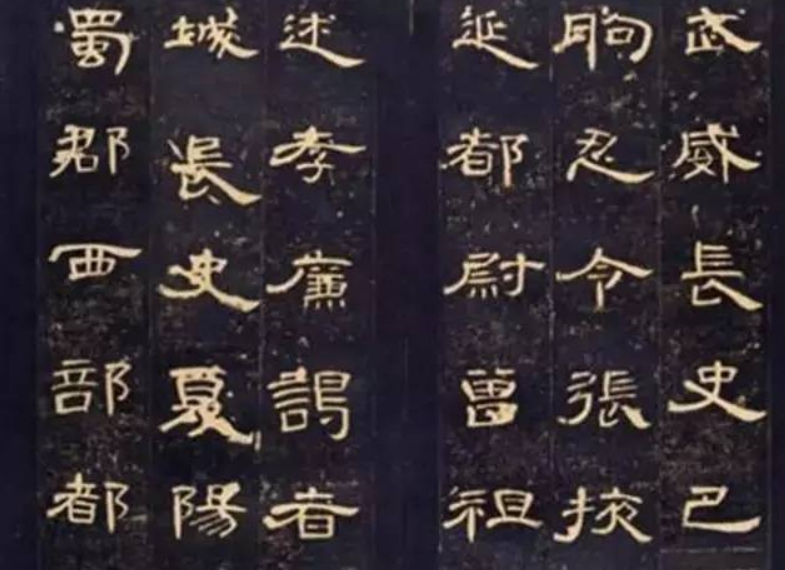 武威長史巴
朐忍令張掖
延都尉曾祖
述孝廉謁者
城長史夏陽
蜀郡西部都